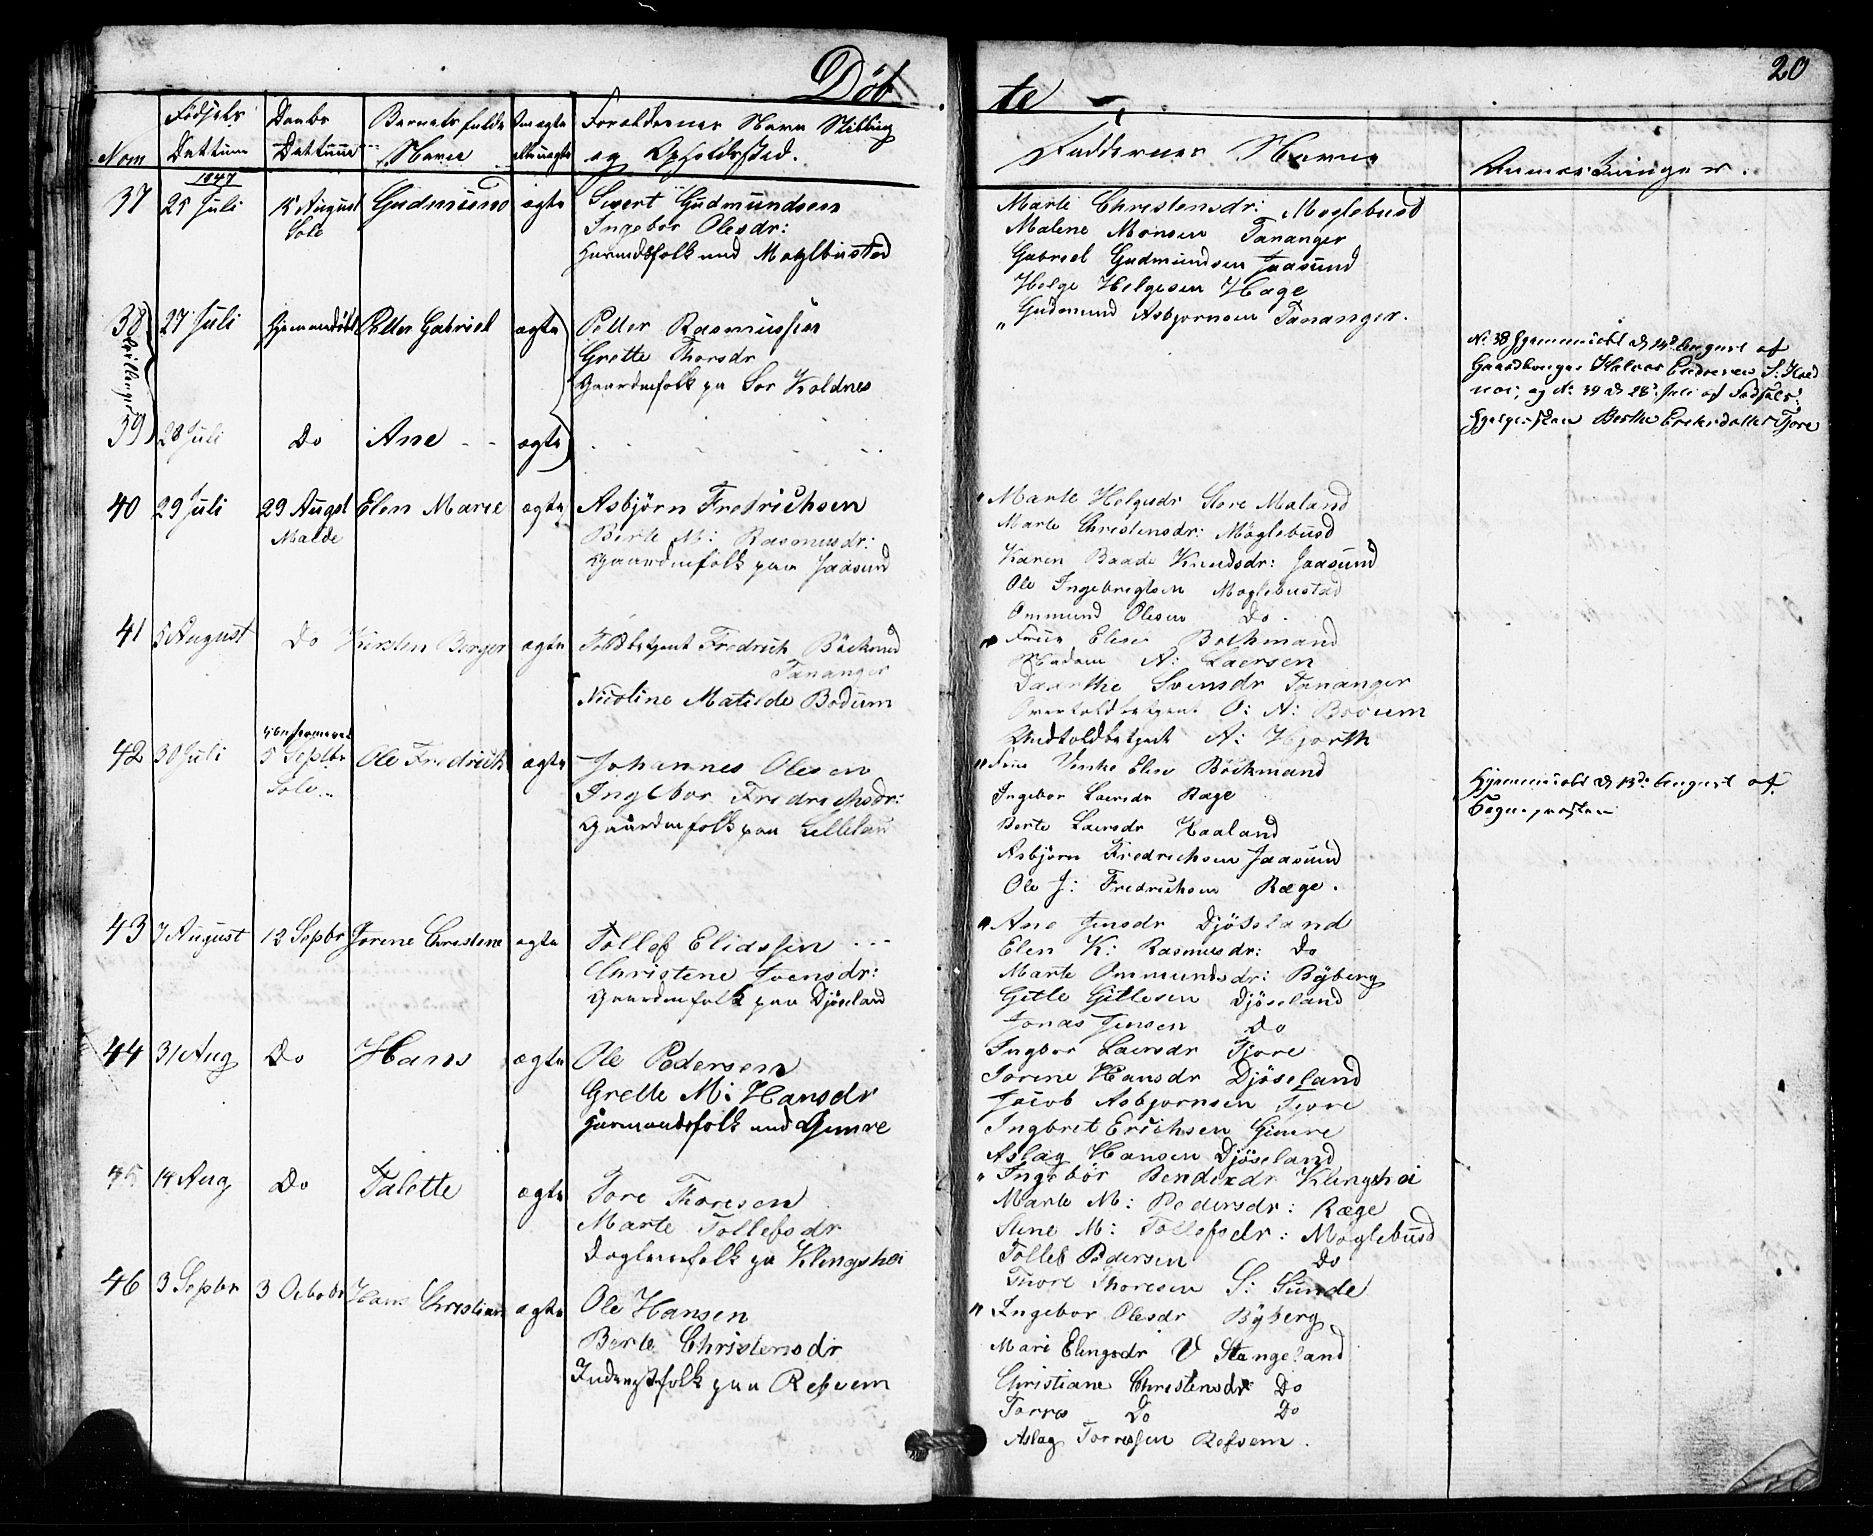 Døb
te
20
Nom
Fødsels
Dattum
Daabs
Dattum
Barnets fulde
Navn
Om ægte
eller uægte
Forældrernes Navn Stilling
og Opholdssted.
Faddernes Navne
Anmærkninger.
1847
37 25 Juli 15 August Gudmund ægte Sivert Gudmundsen
Sole
Ingebor Olesdr:
Huusmandsfolk ved Møglbustad
Marte Christensdr: Møglebusd
Malene Monsen Tananger
Gabriel Gudmundsen Jaasund
Helge Helgesen Hage
Gudmund Asbjornsen Tananger.
38 27 Juli Hjemmedøbt Petter Gabriel ægte Petter Rasmussen
Grette Thorsdr
Gaardmfolk pa Sør Koldnes
Tvillinger
No 38 hjemmedøbt d 14de August af
Gaardbruger Halvor Endresen S: Kold
nes, og No: 39 d 28de Juli af Fødsels:
hjelpersken Berthe Eriksdatter Tjore
39 28 Juli Do Ane - - ægte
40 29 Juli 29 Augst Elen Marie ægte Asbjörn Fredrichsen
Malde
Berte M: Rasmusdr:
Gaardmfolk paa Jaasund
Marte Helgesdr Store Maland
Marte Christensdr: Møglebusd
Karen Baade Knudsdr: Jaasund
Ole Ingebregtsen Møglebustad
Ommund Olesen Do
41 5 August Do Kirsten Berger ægte Toldbetjent Fredrich Böckmand
Tananger
Nicoline Matilde Bodum
Frue Elise Bockmand
Madam A: Laersen
Daarthe Svensdr Tananger
Overtoldbetjent O: A: Bodum
Undtoldbetjent A: Hjorth
42 30 Juli Confirmeret
5 Septbr Ole Fredrich ægte Johannes Olesen
Sole
Ingebor Fredrichsdr:
Gaardmfolk paa Lillelan
Frue Venke Elise Böckmand
Ingebor Laersdr Ræge
Berte Laersdr Haaland
Asbjørn Fredrichsen Jaasund
Ole J: Fredrichsen Ræge.
Hjemmedøbt d 13de August af
Sognepresten
43 7 August 12 Sepbr Jorene Christene ægte Tollef Eliassen
Christene Joensdr:
Gaardmfolk paa Djöseland
Ane Jensdr Djöseland
Elen K: Rasmusdr: Do
Marte Ommundsdr: Byberg
Gitle Gitlesen Djöseland
Jonas Jensen Do
44 31 Aug Do Hans ægte Ole Pedersen
Grette M: Hansdr
Huusmandsfolk ved Gimre
Ingbor Laersdr Tjore
Jorene Hansdr Djöseland
Jacob Asbjornsen Tjore
Ingbret Erichsen Gimre
Aslag Hansen Djöseland
45 14 Aug Do Talette ægte Tore Thoresen
Marte Tollefsdr
Boglsmfolk pa Klingshei
Ingebör Bendixdr Klingshei
Marte M: Pedersdr: Ræge
Stine M: Tollefsdr: Møglebusd
Tollef Pedersen Do
Thore Thoresen S: Sunde
46 3 Sepbr 3 Octobr Hans Christian ægte Ole Hansen
Berte Christensdr
Inderstfolk paa Refsem
Ingebor Olesdr Byberg
Mari Elingsdr V Stangeland
Christiane Christensdr Do
Torres Do Do
Aslag Torresen Refsem.